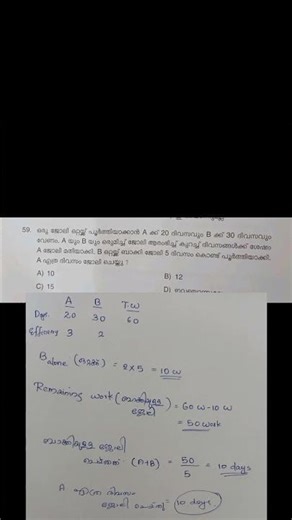 59. ഒരു ജോലി ഒറ്റയ്ക്ക് പൂർത്തിയാക്കാൻ A ക്ക് 20 ദിവസവും B ക്ക് 30 ദിവസവും
വേണം. A യും B യും ഒരുമിച്ച് ജോലി ആരംഭിച്ച് കുറച്ച് ദിവസങ്ങൾക്ക് ശേഷം
A ജോലി മതിയാക്കി. B ഒറ്റയ്ക്ക് ബാക്കി ജോലി 5 ദിവസം കൊണ്ട് പൂർത്തിയാക്കി.
A എത്ര ദിവസം ജോലി ചെയ്തു ?
A) 10 B) 12
C) 15 D)
A B T.W
Days. 20 30 60
Efficiency 3 2
B alone = 2×5 = 10 W
Remaining work (ബാക്കിയുള്ള ജോലി) = 60 W-10 W
= 50 work
ബാക്കിയുള്ള ജോലി
(A+B) = 50/5 = 10 days
A എത്ര ദിവസം
ജോലി ചെയ്തു = 10 days